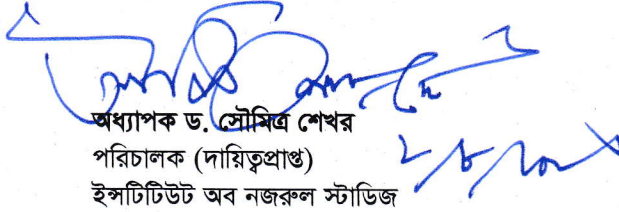 অধ্যাপক ড. সৌমিত্র শেখর
পরিচালক (দায়িত্বপ্রাপ্ত)
ইন্সটিটিউট অব নজরুল স্টাডিজ